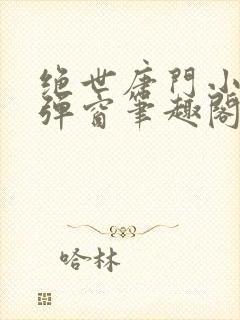 绝世唐门小
弹窗笔趣阁
哈林